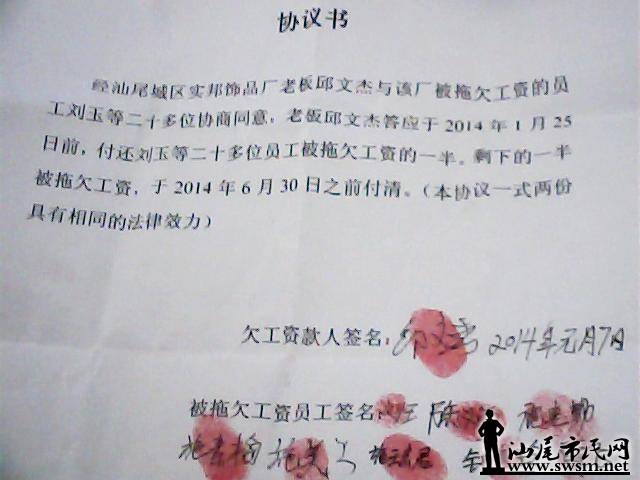 协议书
经汕尾城区实邦饰品厂老板邱文杰与该厂被拖欠工资的员
工刘玉等二十多位协商同意，老板邱文杰答应于2014年1月25
日前，付还刘玉等二十多位员工被拖欠工资的一半。剩下的一半
被拖欠工资，于2014年6月30日之前付清。（本协议一式两份
具有相同的法律效力）
欠工资款人签名：邱文杰 2014年元月7日
被拖欠工资员工签名： 陈
汕尾市民网
www.swsm.net